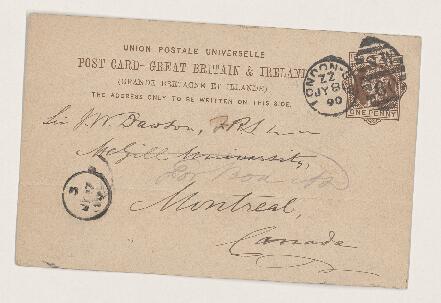 UNION POSTALE UNIVERSELLE
POST CARD - GREAT BRITAIN & IRELAND
(GRANDE BRETAGNE ET IRLANDE)
THE ADDRESS ONLY TO BE WRITTEN ON THIS SIDE.
LONDON
ZZ
JY 8
90
ONE PENNY
Sir J. W. Dawson, FRS
McGill University,
Montreal,
Canada